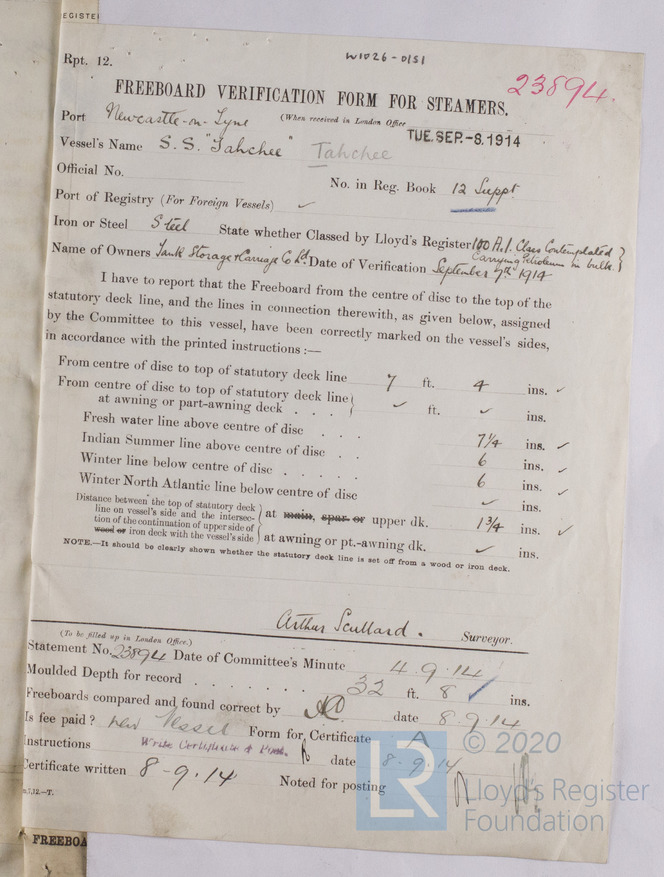 EGISTE
Rpt. 12.
W1026-0151
23894.
FREEBOARD VERIFICATION FORM FOR STEAMERS.
Port Newcastle-on-Tyne (When received in London Office
TUE. SEP.-8. 1914
Vessel's Name S.S. "Tahchee" Tahchee
Official No.
No. in Reg. Book 12 Suppt.
Port of Registry (For Foreign Vessels) ✓
Iron or Steel Steel State whether Classed by Lloyd's Register 100 A.1. Class Contemplated }
Carrying Petroleum in bulk. }
Name of Owners Tank Storage & Carriage Co Ld. Date of Verification September 7th 1914
I have to report that the Freeboard from the centre of disc to the top of the
statutory deck line, and the lines in connection therewith, as given below, assigned
by the Committee to this vessel, have been correctly marked on the vessel's sides,
in accordance with the printed instructions :—
From centre of disc to top of statutory deck line 7 ft. 4 ins. ✓
From centre of disc to top of statutory deck line }
at awning or part-awning deck . . . } ✓ ft. ✓ ins.
Fresh water line above centre of disc . . . 7 1/4 ins. ✓
Indian Summer line above centre of disc . . 6 ins. ✓
Winter line below centre of disc . . . . . 6 ins. ✓
Winter North Atlantic line below centre of disc ✓ ins.
Distance between the top of statutory deck
line on vessel's side and the intersec-
tion of the continuation of upper side of
wood or iron deck with the vessel's side
at main, spar or upper dk. 1 3/4 ins. ✓
at awning or pt.-awning dk. ✓ ins.
NOTE.—It should be clearly shown whether the statutory deck line is set off from a wood or iron deck.
Arthur Scullard. Surveyor.
(To be filled up in London Office.)
Statement No. 23894 Date of Committee's Minute 4.9.14
Moulded Depth for record . . . . . . . . 32 ft. 8 ✓ ins.
Freeboards compared and found correct by date 8.9.14
Is fee paid? new Vessel Form for Certificate A
Instructions Write Certificate & Post. date 8.9.14
Certificate written 8-9.14 Noted for posting
7,12.—T.
FREEBOA
LR © 2020
Lloyd's Register
Foundation